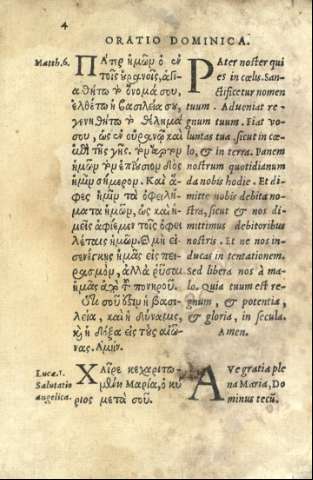 4
ORATIO DOMINICA.
Matth.6.
ΠΑτερ ἡμῶν ὁ ἐν
τοῖς οὐρανοῖς, ἁγια
σθήτω τὸ ὄνομά σου,
ἐλθέτω ἡ βασιλεία σου,
γενηθήτω τὸ θέλημά
σου, ὡς ἐν οὐρανῷ καὶ
ἐπὶ τῆς γῆς. τὸν ἄρτον
ἡμῶν τὸν ἐπιούσιον δὸς
ἡμῖν σήμερον. Καὶ ἄ-
φες ἡμῖν τὰ ὀφειλή-
ματα ἡμῶν, ὡς καὶ ἡ-
μεῖς ἀφίεμεν τοῖς ὀφει
λέταις ἡμῶν. καὶ μὴ εἰ-
σενέγκης ἡμᾶς εἰς πει-
ρασμόν, ἀλλὰ ῥῦσαι
ἡμᾶς ἀπὸ τοῦ πονηροῦ.
Ὅτι σοῦ ἐστιν ἡ βασι-
λεία, καὶ ἡ δύναμις,
καὶ ἡ δόξα εἰς τοὺς αἰῶ-
νας. Αμήν.
PAter noster qui
es in cœlis. San-
ctificetur nomen
tuum. Adueniat re-
gnum tuum. Fiat vo-
luntas tua, sicut in cœ-
lo, & in terra. Panem
nostrum quotidianum
da nobis hodie. Et di-
mitte nobis debita no-
stra, sicut & nos di-
mittimus debitoribus
nostris. Et ne nos in-
ducas in tentationem.
Sed libera nos à ma-
lo. Quia tuum est re-
gnum, & potentia,
& gloria, in secula.
Amen.
Lucæ.1.
Salutatio
Angelica.
ΧΑῖρε κεχαριτω-
μένη Μαρία, ὁ κύ
ριος μετὰ σοῦ.
AVe gratia ple
na Maria, Do
minus tecũ.